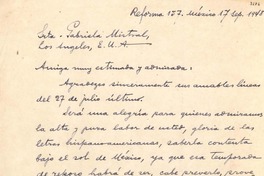 Reforma 157. México 17 Sep. 1948
Srta. Gabriela Mistral,
Los Angeles, E.U.A.
Amiga muy estimada y admirada:
Agradezco sinceramente sus amables líneas
del 27 de julio último.
Será una alegría para quienes admiramos
la alta y pura labor de usted, gloria de las
letras hispanoamericanas, saberla contenta
bajo el sol de México, ya que esa temporada
de reposo habrá de ser, cabe preverlo, prove